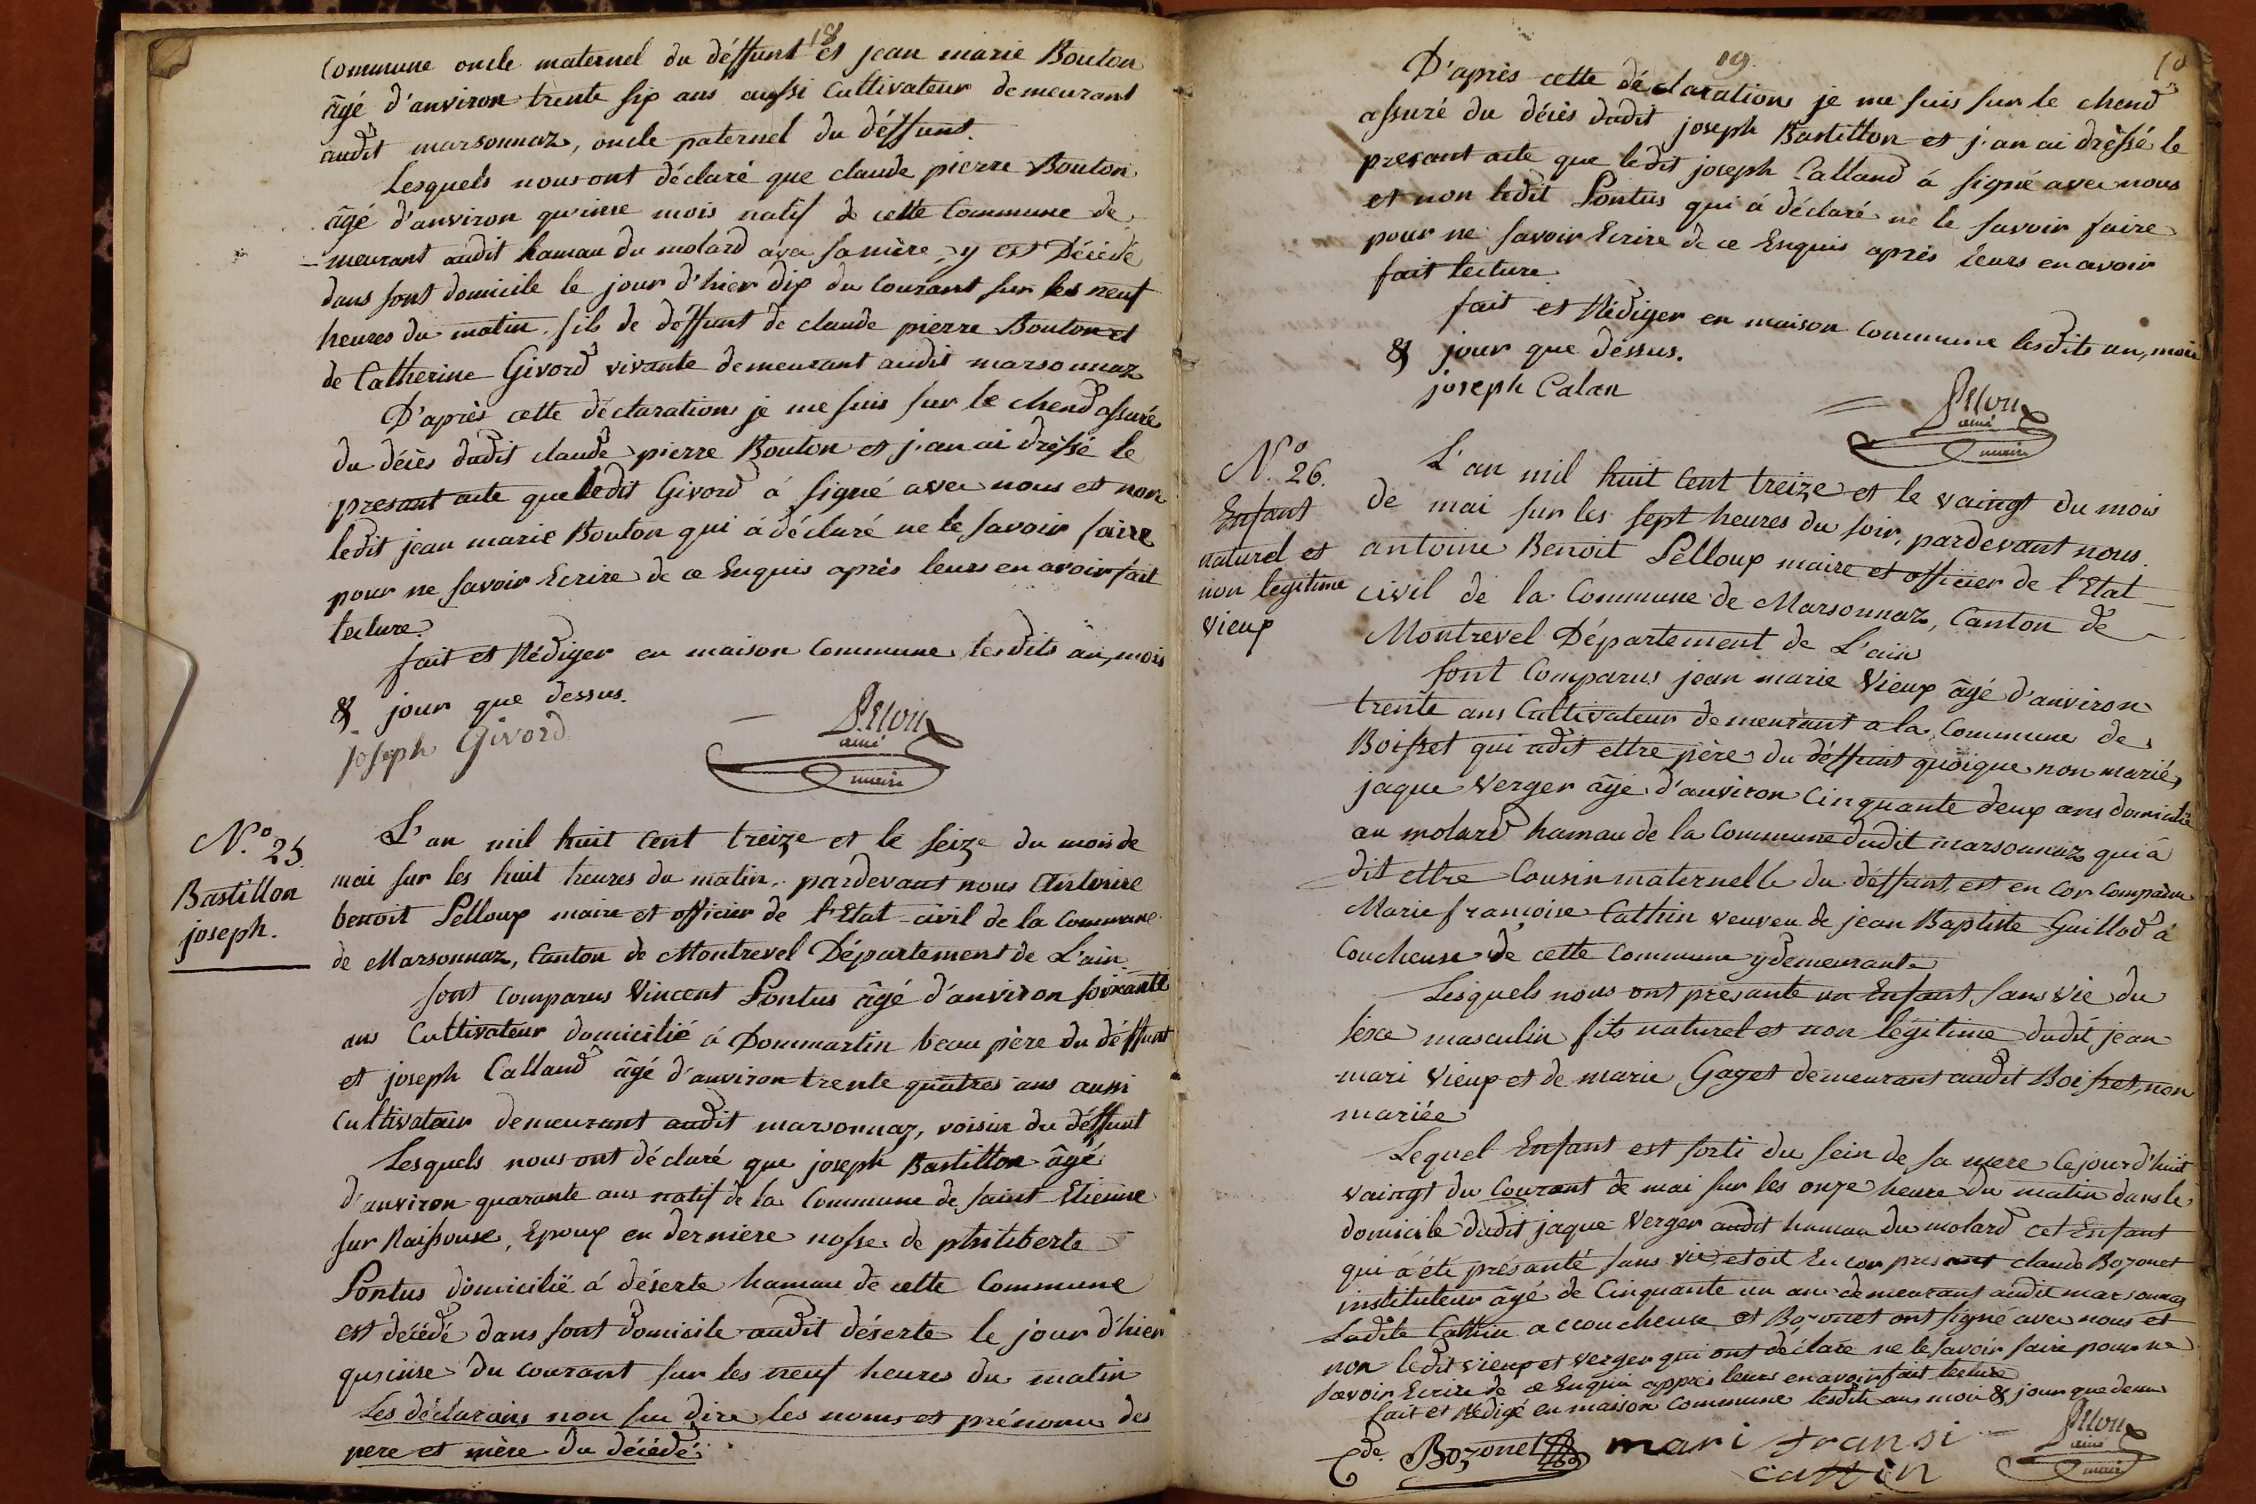 18
commune oncle maternel du déffunt et jean marie Bouton
âgé d'anviron trente six ans aussi Cultivateur demeurant
audit marsonnaz, oncle paternel du déffunt.
Lesquels nous ont déclaré que claude pierre Bouton
âgé d'anviron quinse mois natif de cette Commune de
meurant audit hamau du molard avec sa mère, y est Décédé
dans sont domicile le jour d'hier dix du Courant sur les neuf
heures du matin, fils de deffunt de claude pierre Bouton et
de Catherine Givord vivante demeurant audit marsonnaz
D'après cette déclarations je me suis sur le chend assuré
du décès dudit claude pierre Bouton et j'an ai dréssé le
presant acte que ledit Givord á signé avec nous et non
ledit jean marie Bouton qui á déclaré ne le savoir faire
pour ne savoir Ecrire de ce Enquis après leurs en avoir fait
lecture.
fait et Rédiger en maison Commune lesdits an, mois
& jour que dessus.
joseph Givord
Pellou
ainé
maire
N.o 25.
Bastillon
joseph.
L'an mil huit Cent treize et le seize du mois de
mai sur les huit heures du matin, pardevant nous Antoine
benoit Pelloux maire et officier de l'Etat-civil de la Commune
de Marsonnaz, Canton de Montrevel Département de L'ain
sont comparus Vincent Pontus âgé d'anviron soixante
ans Cultivateur domicilié á Dommartin beau père du déffunt
et joseph Calland âgé d'anviron trente quatres ans aussi
Cultivateur demeurant audit marsonnaz, voisin du déffunt
Lesquels nous ont déclaré que joseph Bastillon âgé
d'anviron quarante ans natif de la Commune de saint Etienne
sur Raissouse, Epoux en derniere nosse de philiberte
Pontus domicilié á déserte hamau de cette Commune
est décédé dans sont domicile audit déserte le jour d'hier
quinse du courant sur les neuf heures du matin
Les déclarans non su dire les noms et prénoms des
pere et mère du décédé.
19.
10
D'après cette déclarations je me suis sur le chend
assuré du décès dudit joseph Bastillon et j'an ai dréssé le
presant acte que ledit joseph Calland á signé avec nous
et non ledit Pontus qui á déclaré ne le savoir faire
pour ne savoir Ecrire de ce Enquis après leurs en avoir
fait lecture.
fait et Rédiger en maison Commune lesdits an, mois
& jour que déssus.
joseph Calan
Pellou
ainé
maire
N.o 26.
Enfant
naturel et
non legitime
vieux
L'an mil huit Cent treize et le vaingt du mois
de mai sur les sept heures du soir, pardevant nous
antoine Benoit Pelloux maire et officier de l'Etat
civil de la Commune de Marsonnaz, Canton de
Montrevel Département de L'ain
sont Comparus jean marie Vieux âgé d'anviron
trente ans Cultivateur demeurant a la Commune de
Boisset qui adit ettre père du déffunt quoique non marié,
jaque Verger âgé d'anviron Cinquante deux ans domicilié
au molard hamau de la Commune dudit marsonnaz qui á
dit ettre Cousin maternelle du déffunt, est en cor Comparue
Marie francoise Cathin veuveu de jean Baptiste Guillod á
Coucheuse de cette Commune y demeurante
Lesquels nous ont presanté un Enfant sans vie du
sexe masculin fils naturel et non légitime dudit jean
mari Vieux et de marie Gaget demeurant audit Boisset, non
mariée
Lequel Enfant est sorti du sein de sa mere cejourd'huit
vaingt du Courant de mai sur les onze heure du matin dans le
domicile dudit jaque Verger audit hamau du molard cet Enfant
qui á été présanté sans vie, etoit En cor presant claude Bozonet
instituteur âgé de Cinquante un ans demeurant audit marsonnaz
Ladite Cathin accoucheuse et Bozonet ont signé avec nous et
non ledit vieux et Verger qui ont déclaré ne le savoir faire pour ne
savoir Ecrire de ce Enquis appres leurs en avoir fait lecture
fait et Rédigé en maison Commune lesdits an, mois & jour que dessus
Cde. Bozonet mari fransi
cattin
Pellou
ainé
maire